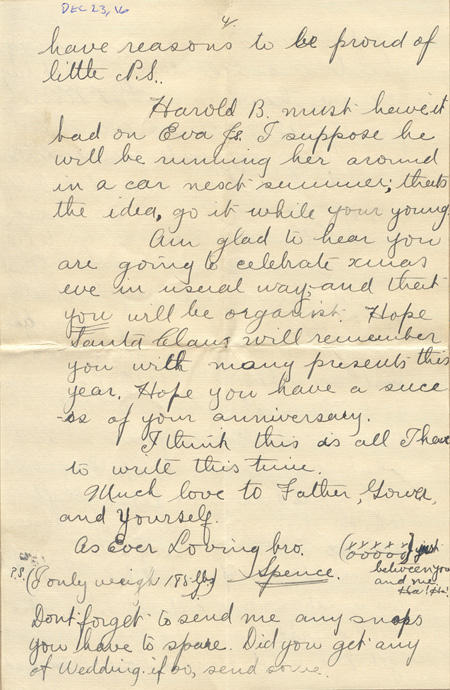 DEC 23, 16
4.
have reasons to be proud of
little P.S..
Harold B. must have it
bad on Eva Js. I suppose he
will be running her around
in a car next summer; thats
the idea, go it while your young.
Am glad to hear you
are going to celebrate xmas
eve in usual way, and that
you will be organist. Hope
Santa Claus will remember
you with many presents this
year. Hope you have a succ
-es of your anniversary.
I think this is all I have
to write this time.
Much love to Father, Gower,
and Yourself.
As Ever Loving bro.
Spence.
(xxxxx
ooooo) just
between you
and me
Ha! Ha!
P.S. (I only weigh 185 lbs)
Dont forget to send me any snaps
you have to spare. Did you get any
of Wedding. if so, send some.